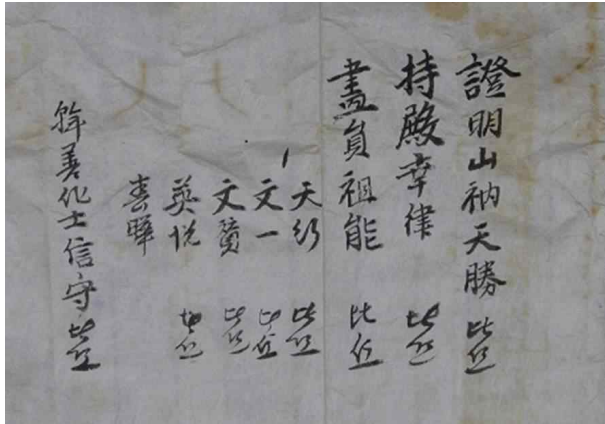 證明山衲天勝 比丘
持殿幸律 比丘
畫員祖能 比丘
天 比丘
文一 比丘
文贊 比丘
英悅 比丘
春曄
幹善化士信守 比丘